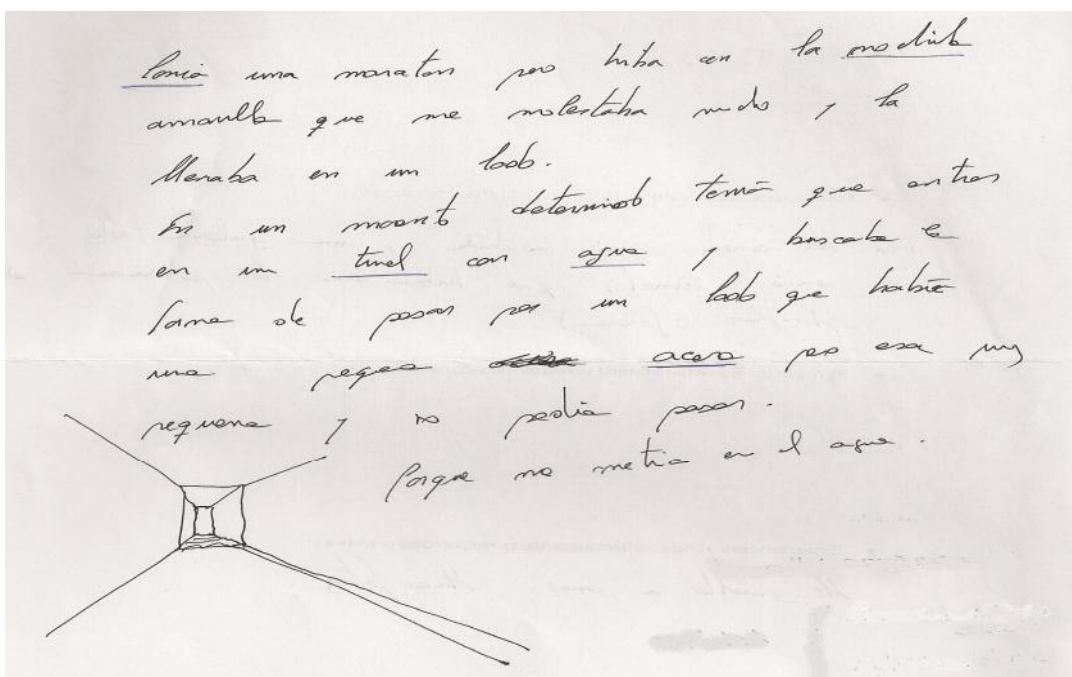 Corria una maraton pero hiba con la mochila
amarilla que me molestaba mucho y la
llevaba en un lado.
En un momento determinado tenia que entrar
en un tunel con agua y buscaba la
forma de pasar por un lado que había
una pequeña acera pero era muy
pequeña y no podia pasar.
Porque me metia en el agua.